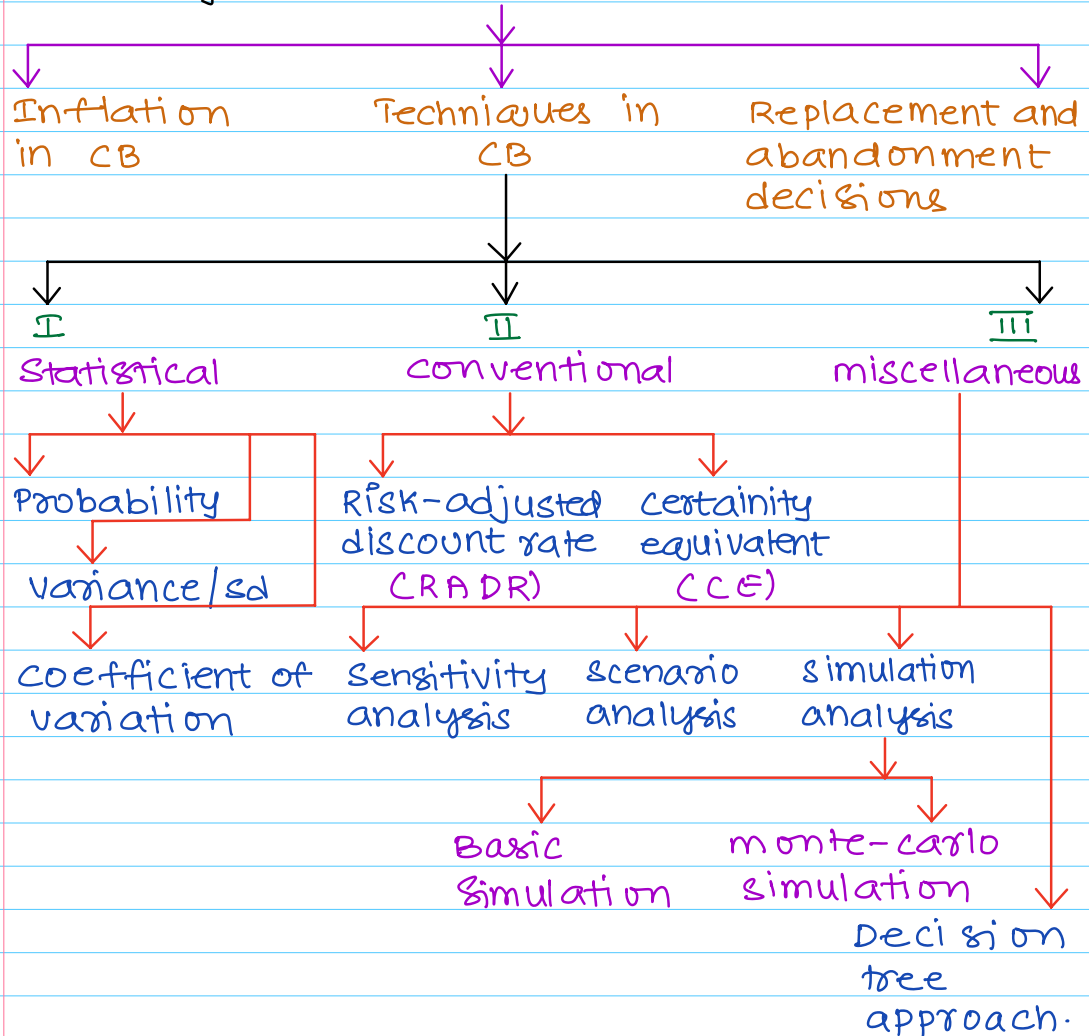 Inflation
in CB
Techniques in
CB
Replacement and
abandonment
decisions
I
Statistical
II
conventional
III
miscellaneous
Probability
variance/sd
coefficient of
variation
Risk-adjusted
discount rate
(RADR)
certainity
equivalent
(CCE)
Sensitivity
analysis
scenario
analysis
simulation
analysis
Basic
Simulation
monte-carlo
simulation
Decision
tree
approach.